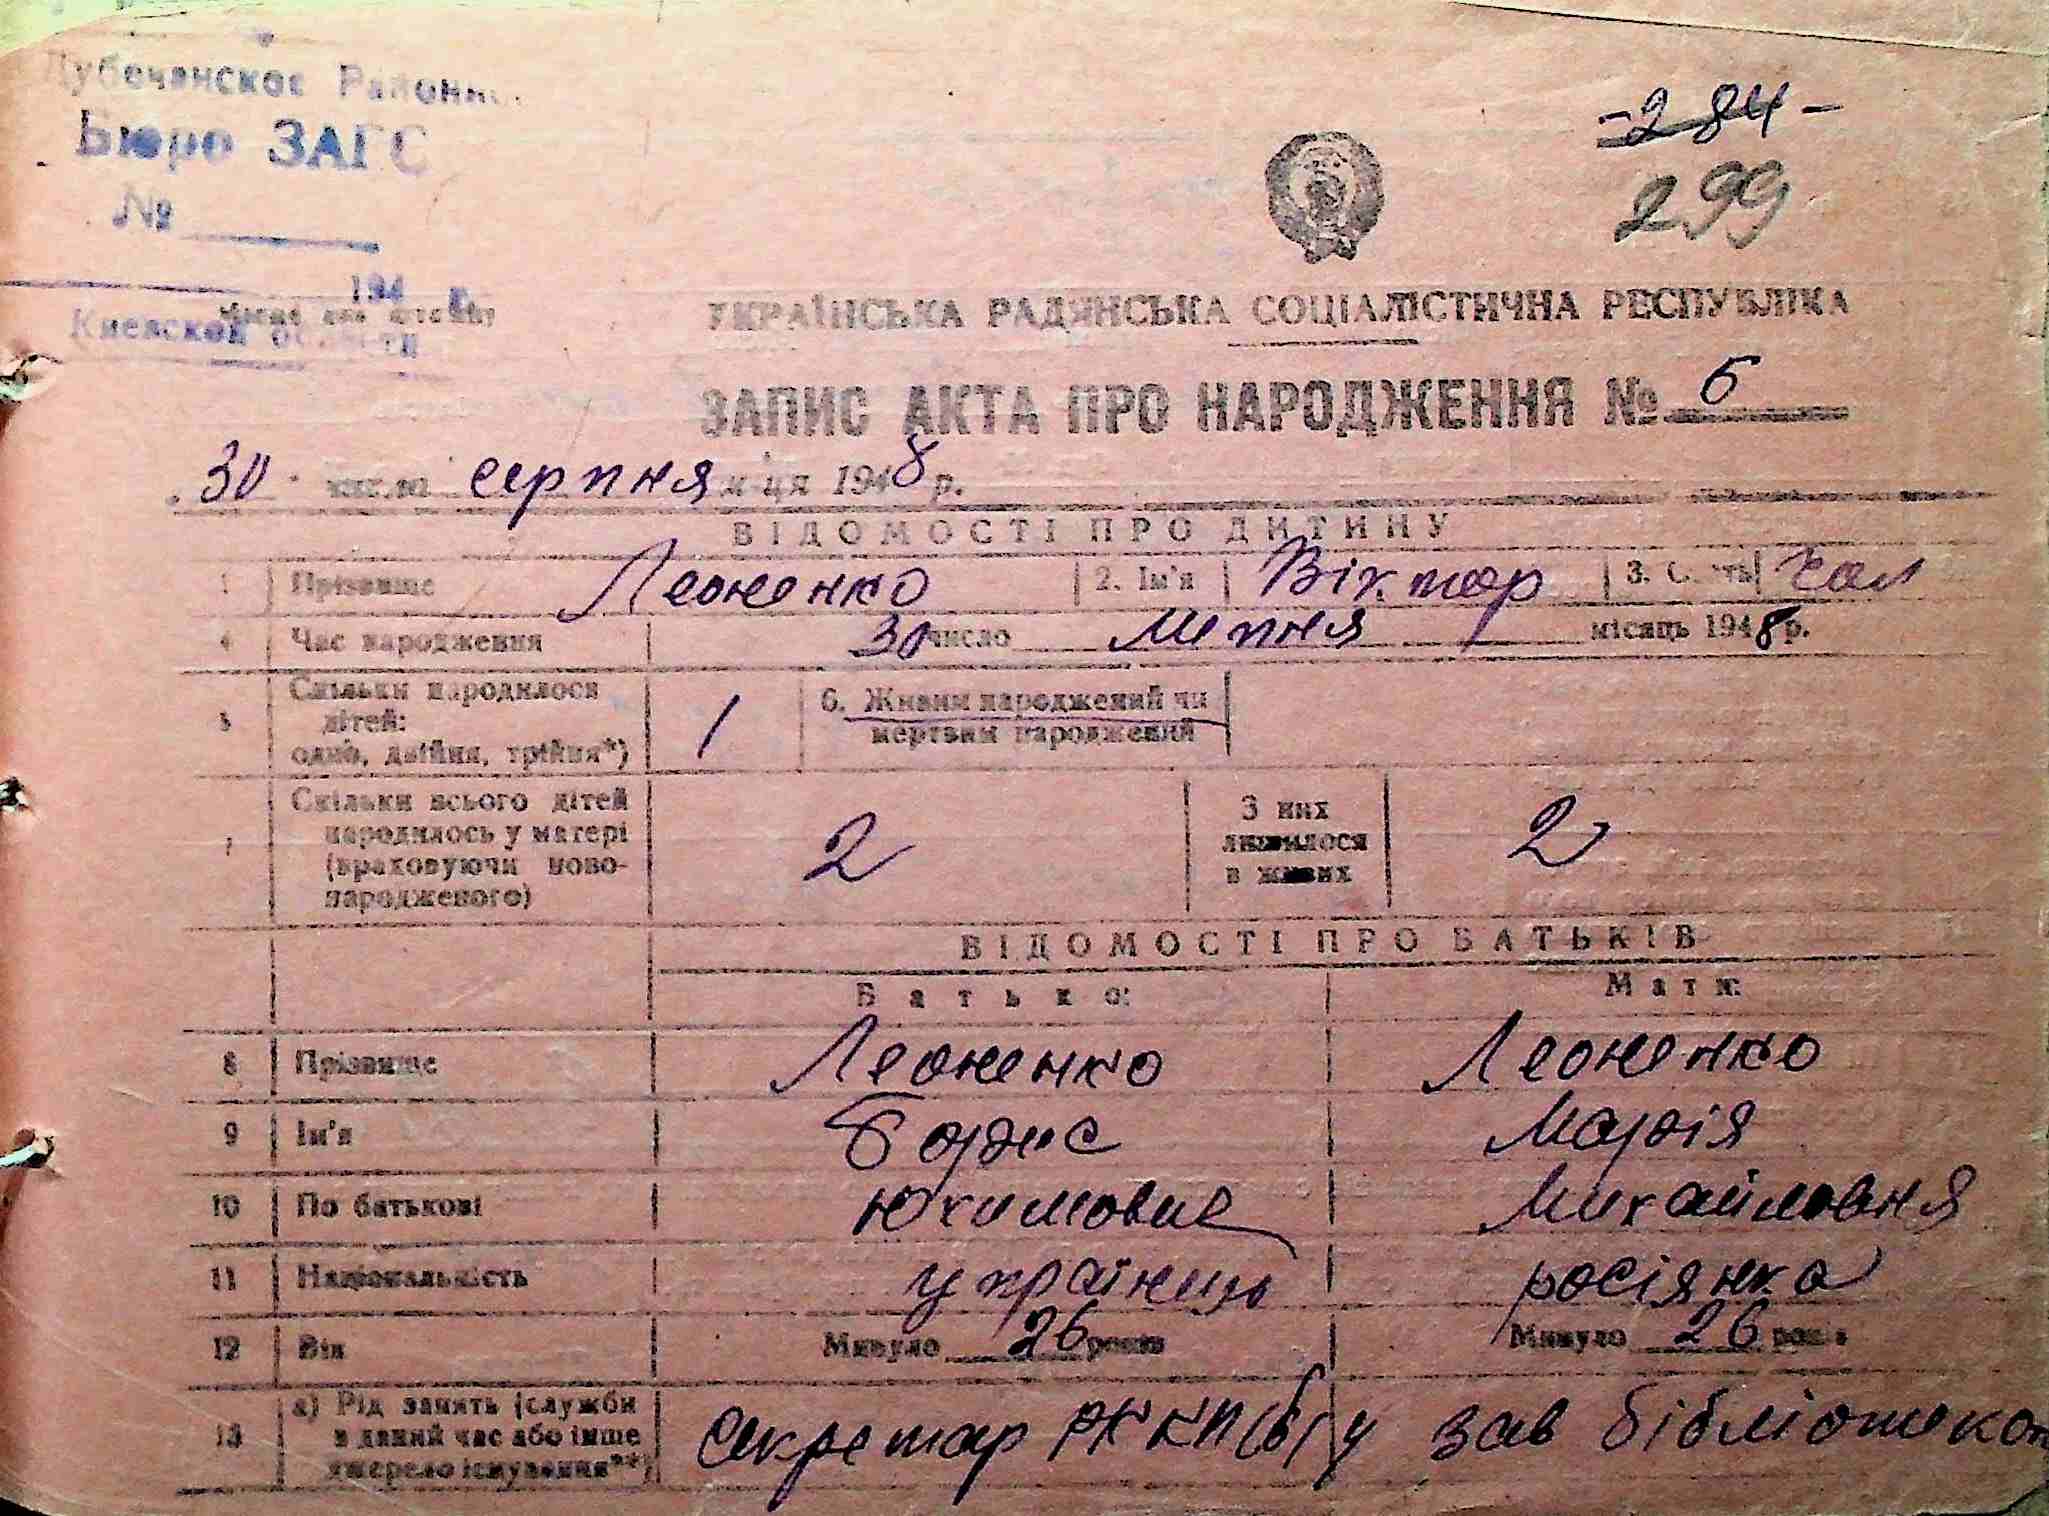 Районн
Бюро ЗАГС
№
194 г.
Місце для штампу
Киевской области
-284-
299
УКРАЇНСЬКА РАДЯНСЬКА СОЦІАЛІСТИЧНА РЕСПУБЛІКА
ЗАПИС АКТА ПРО НАРОДЖЕННЯ № 6
30 числа серпня м-ця 1948 р.
ВІДОМОСТІ ПРО ДИТИНУ
1 Прізвище Леоненко 2. Ім'я Віктор 3. Стать чол
4 Час народження 30 число липня місяць 1948 р.
5 Скільки народилося дітей: одно, двійня, трійня*) 1 6. Живим народжений чи мертвим народжений
7 Скільки всього дітей народилось у матері (враховуючи ново-народженого) 2 З них лишилося в живих 2
ВІДОМОСТІ ПРО БАТЬКІВ
Батько: Мати:
8 Прізвище Леоненко Леоненко
9 Ім'я Борис Марія
10 По батькові Юхимович Михайловня
11 Національність українець росіянка
12 Вік Минуло 26 років Минуло 26 років
13 а) Рід занять (служби в даний час або інше джерело існування**) секретар РК КП(б)у зав бібліотекою